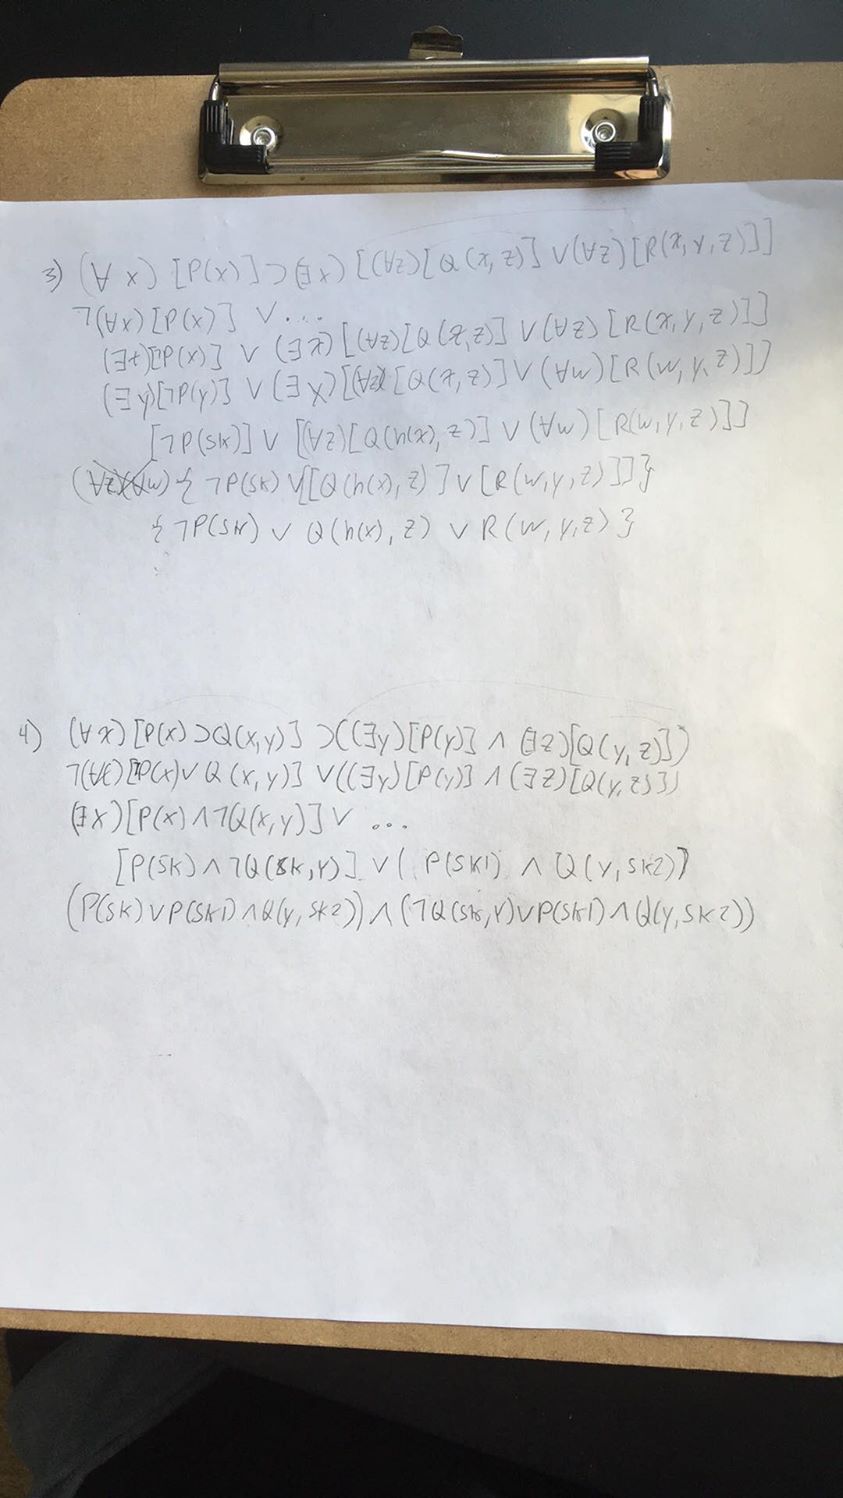 3) (∀x) [P(x)] ⊃ (∃x) [(∀z)[Q(x,z)] ∨ (∀z)[R(x,y,z)]]
¬(∀x)[P(x)] ∨ ...
(∃x)[¬P(x)] ∨ (∃x)[(∀z)[Q(x,z)] ∨ (∀z)[R(x,y,z)]]
(∃y)[¬P(y)] ∨ (∃x)[(∀z)[Q(x,z)] ∨ (∀w)[R(w,y,z)]]
[¬P(sk)] ∨ [(∀z)[Q(h(x),z)] ∨ (∀w)[R(w,y,z)]]
{¬P(sk) ∨ [[Q(h(x),z)] ∨ [R(w,y,z)]]}
{¬P(sk) ∨ Q(h(x),z) ∨ R(w,y,z)}
4) (∀x)[P(x) ⊃ Q(x,y)] ⊃ ((∃y)[P(y)] ∧ (∃z)[Q(y,z)])
¬(∀x)[¬P(x) ∨ Q(x,y)] ∨ ((∃y)[P(y)] ∧ (∃z)[Q(y,z)])
(∃x)[P(x) ∧ ¬Q(x,y)] ∨ ...
[P(sk) ∧ ¬Q(sk,y)] ∨ (P(sk1) ∧ Q(y,sk2))
(P(sk) ∨ P(sk1) ∧ Q(y,sk2)) ∧ (¬Q(sk,y) ∨ P(sk1) ∧ Q(y,sk2))